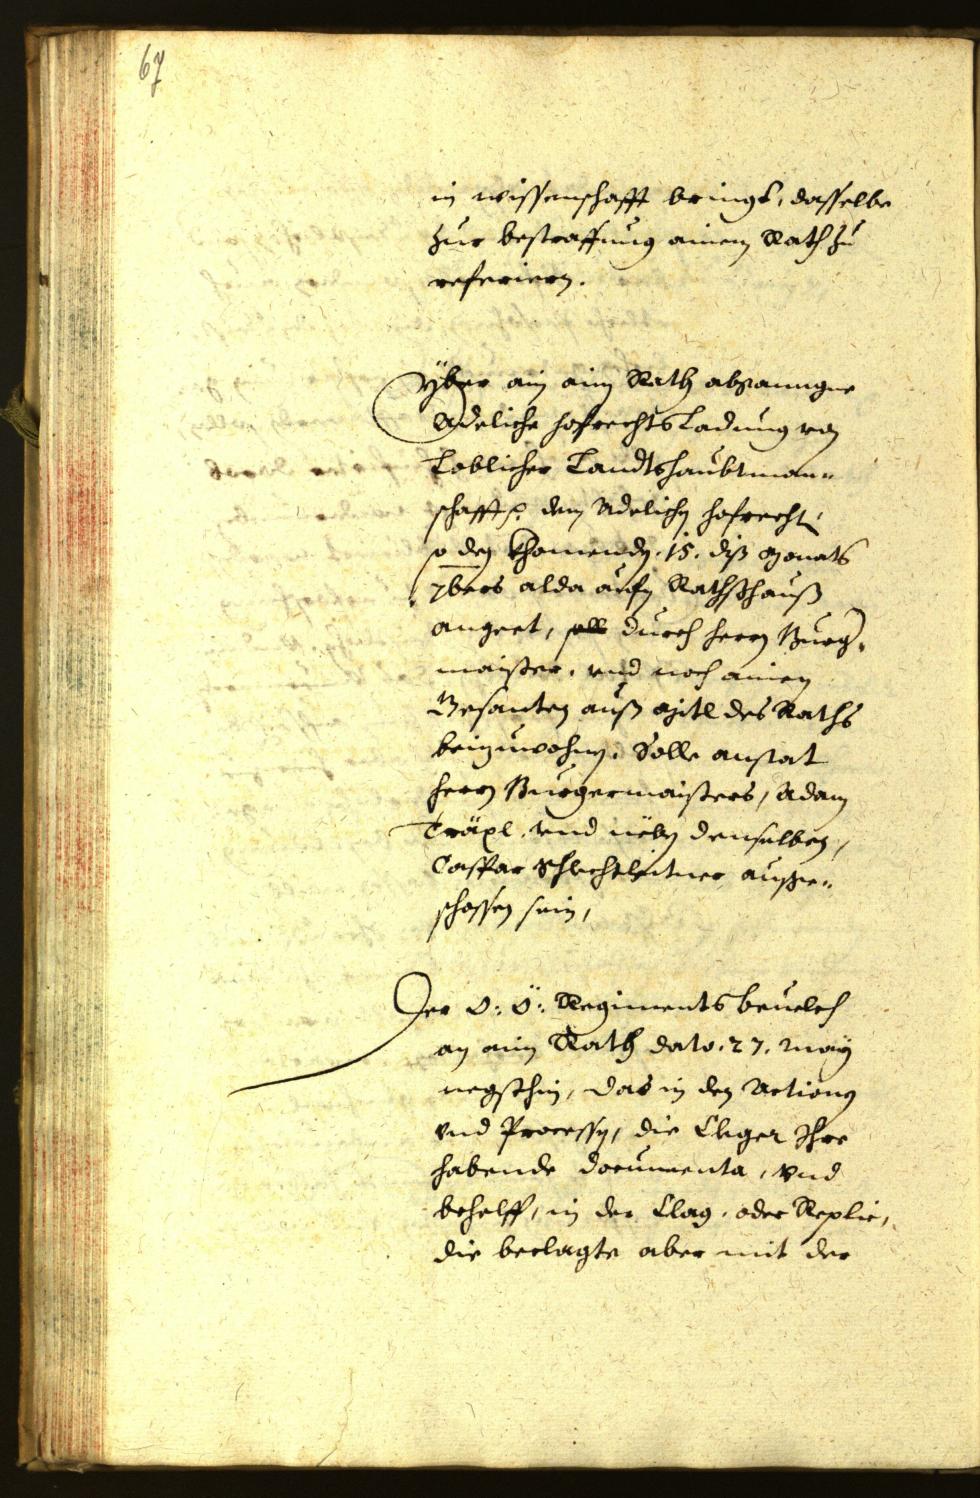 67
in wissenschafft bringt, dasselbe
zur bestraffung ainem Rath zu
referiern.
Yber ain aim Rath abganngne
Adeliche hofrechts Ladung von
Loblicher Landtshaubtman„
schafft p. dem Adelichn hofrecht,
so den khomendn .15. diß Monats
7bers alda aufn Rathshauß
angeet, durch herrn Burg„
maister, vnd noch ainen
Gesanten auß Mitl des Raths
beizuwohnen. Solle anstat
herrn Burgermaisters, Adam
Träxl, vnd neben denselben,
Casspar Schlechtleitner außge„
schossen sein,
Der O: Ö: Regiments beuelch
an aim Rath dato .27. May
negsthin, das in den Actionen
vnd Processn, die Clager Ihre
habende documenta, vnd
behelff, in der Clag, oder Replic,
die beclagte aber mit der